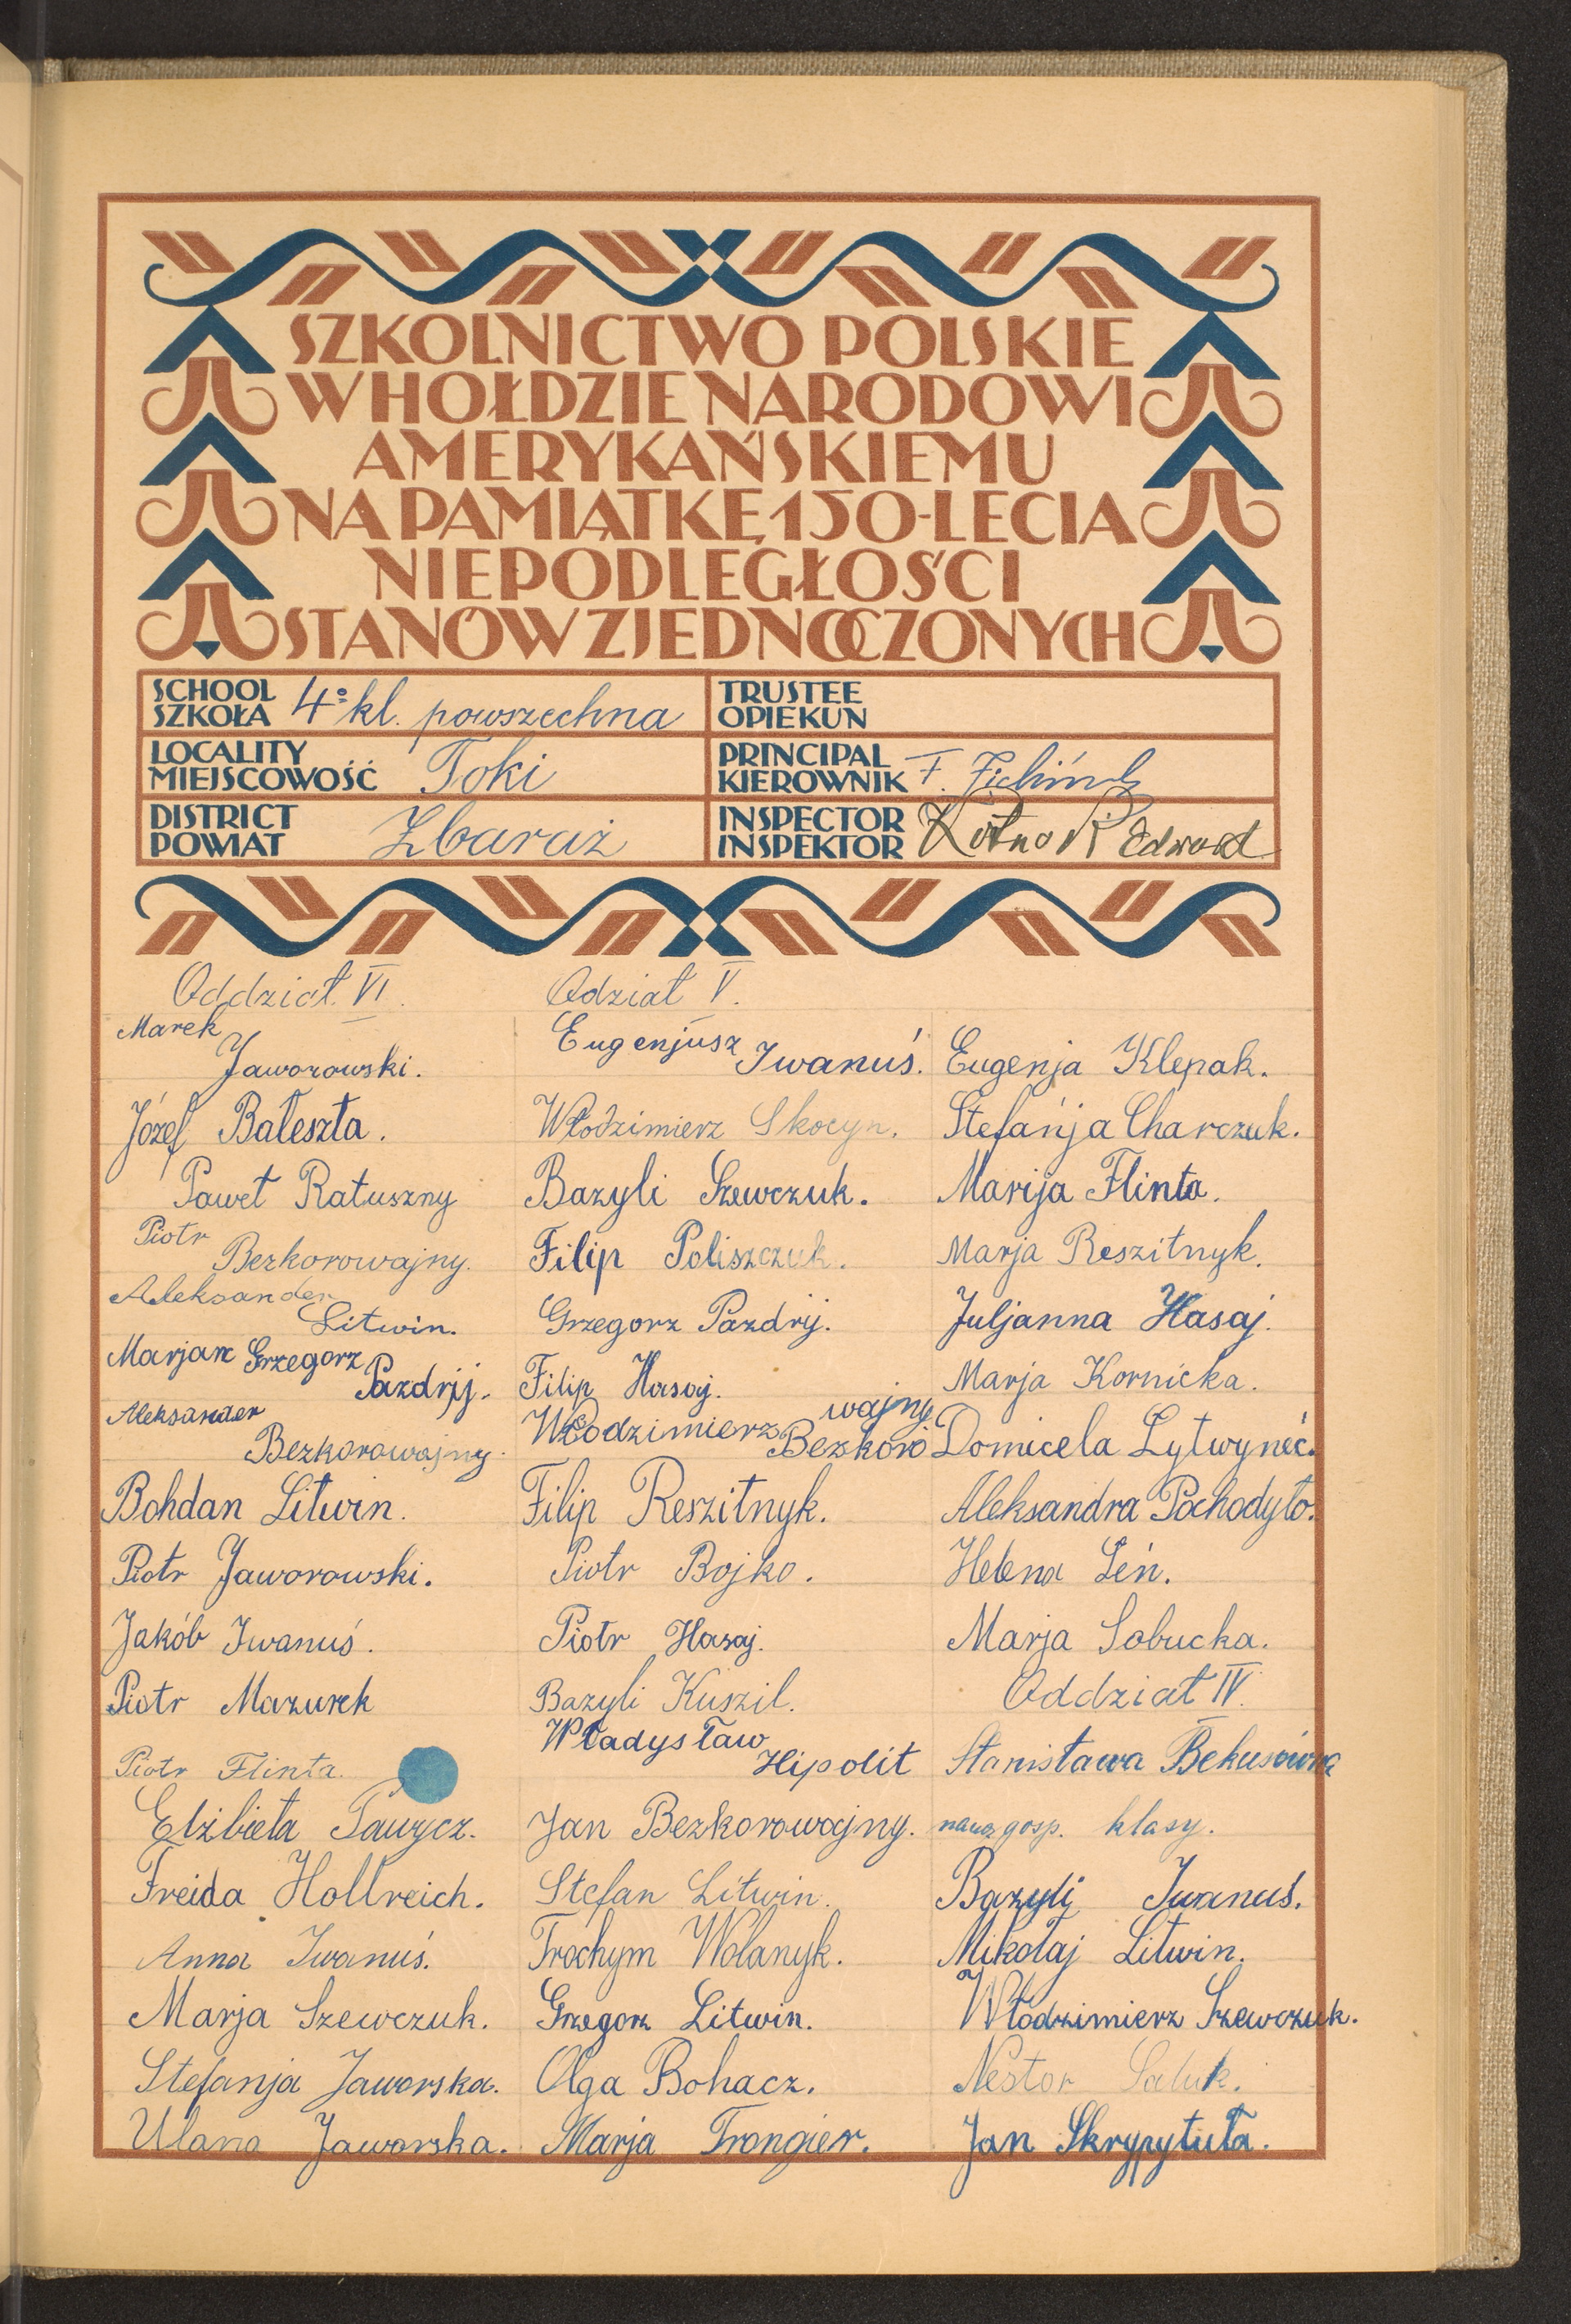 SZKOLNICTWO POLSKIE
W HOŁDZIE NARODOWI
AMERYKAŃSKIEMU
NA PAMIĄTKĘ 150-LECIA
NIEPODLEGŁOŚCI
STANÓW ZJEDNOCZONYCH
SCHOOL
SZKOŁA 4º kl. powszechna
TRUSTEE
OPIEKUN
LOCALITY
MIEJSCOWOŚĆ Toki
PRINCIPAL
KIEROWNIK F.
DISTRICT
POWIAT Zbaraż
INSPECTOR
INSPEKTOR Edward
Oddział VI.
Marek
Jaworowski.
Józef Bałeszta.
Paweł Ratuszny
Piotr
Bezkorowajny.
Aleksander
Litwin.
Marjan Grzegorz
Pazdrij.
Aleksander
Bezkorowajny.
Bohdan Litwin.
Piotr Jaworowski.
Jakób Iwanuś.
Piotr Mazurek
Piotr Flinta.
Elżbieta Pawycz.
Freida Hollreich.
Anna Iwanuś.
Marja Szewczuk.
Stefanja Jaworska.
Ulana Jaworska.
Odział V.
Eugenjusz
Iwanuś.
Włodzimierz Skocyn.
Bazyli Szewczuk.
Filip Poliszczuk.
Grzegorz Pazdrij.
Filip Hasaj.
Włodzimierz
wajny
Bezkoro
Filip Reszitnyk.
Piotr Bojko.
Piotr Hasaj.
Bazyli Kuszil.
Władysław
Hipolit
Jan Bezkorowajny.
Stefan Litwin.
Trochym Wolanyk.
Grzegorz Litwin.
Olga Bohacz.
Marja Trongier.
Eugenja Klepak.
Stefanja Charczuk.
Marija Flinta.
Marja Reszitnyk.
Juljanna Hasaj.
Marja Kornicka.
Domicela Lytwyneć.
Aleksandra Pochodyło.
Helena Leń.
Marja Sobucka.
Oddział IV.
Stanisława Bekusówna
naucz gosp. klasy.
Bazylij Iwanuś.
Mikołaj Litwin.
Włodzimierz Szewczuk.
Nestor Saluk.
Jan Skrypytuła.